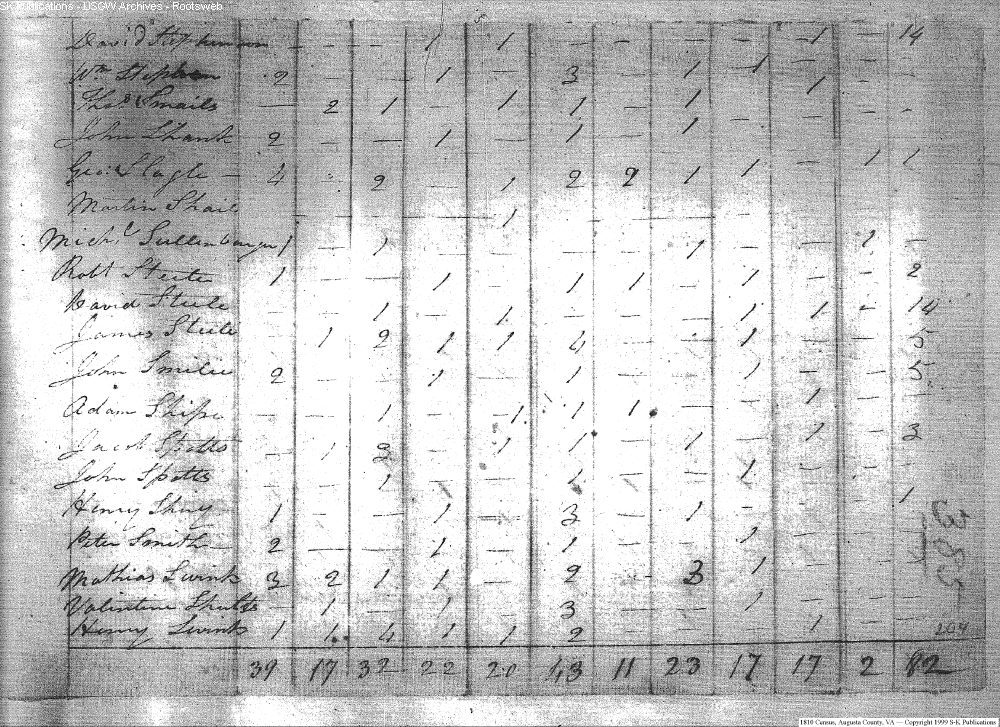 SK Publications - USGW Archives - Rootsweb
David Stephenson — — — 1 1 — — — — 1 — 14
Wm Stephen 2 — — 1 — 3 — 1 1 — — —
Thos Smails — 2 1 — 1 1 — 1 — 1 — —
John Shank 2 — — 1 — 1 — 1 — — — —
Geo: Slagle — 4 — 2 — 1 2 2 1 1 — 1 1
Martin Shail — — — — 1 — — — — — — —
Michl Sullenbarger 1 — 1 — — — — 1 — — 1 —
Robt Steele 1 — — 1 — 1 1 — 1 — — 2
David Steele — — 1 — 1 — — — 1 1 — 14
James Steele — 1 2 1 1 4 — — 1 — — 5
John Smilie 2 — — 1 — 1 — — 1 — — 5
Adam Shipe — — 1 — 1 1 1 — — 1 — —
Jacob Spotts — 1 3 — 1 1 — 1 — 1 — 3
John Spotts — — 1 — — 1 — — 1 — — —
Henry 1 — — 1 — 3 — 1 — — — 1
Peter Smith 2 — — 1 — 1 — — 1 — — —
Mathias Swink 3 2 1 1 — 2 — 3 1 — — —
Valentine Shults — 1 — 1 — 3 — — 1 — — —
Henry Swink 1 1 4 1 1 2 — — — 1 — —
204
39 17 32 22 20 43 11 23 17 17 2 82
1810 Census, Augusta County, VA — Copyright 1999 S-K Publications